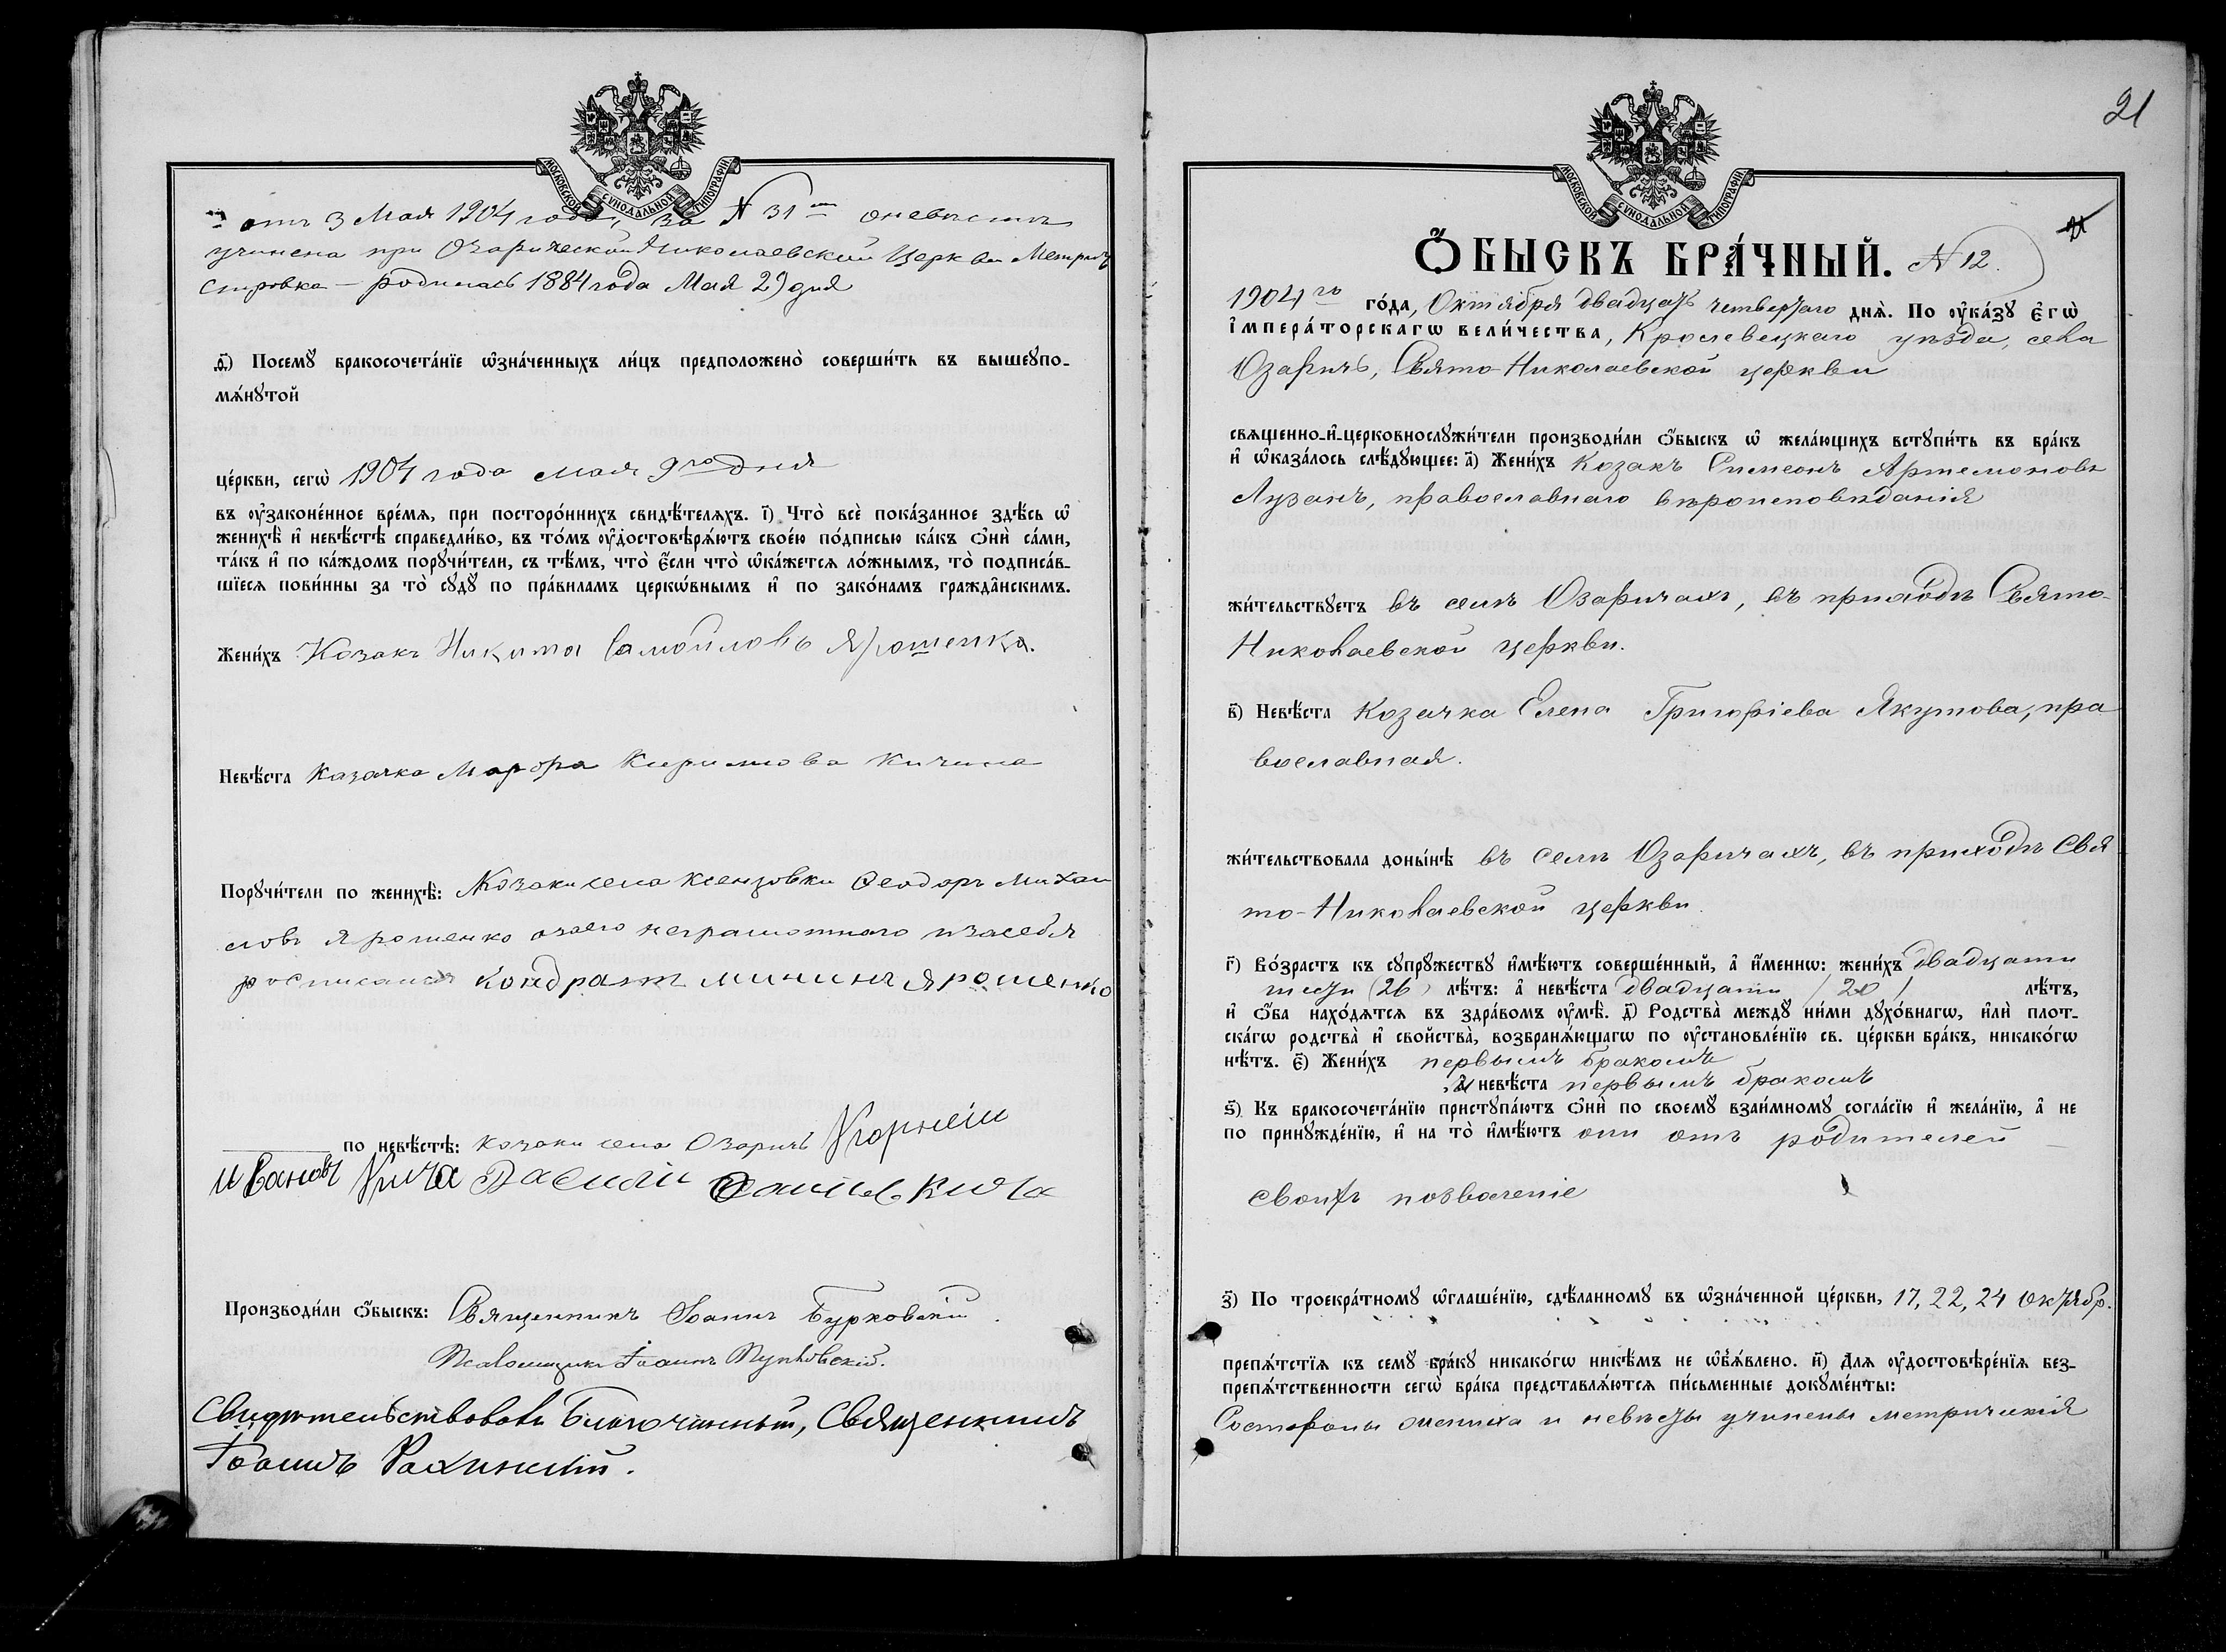 МОСКОВСКОЙ СѴНОДАЛЬНОЙ ТИПОГРАФІИ
отъ 3 Мая 1904 года, за N 31 о невѣстѣ
учинена при Озарической Николаевской Церкви Метрич
справка — родилась 1884 года Мая 29 дня
д҃) Посемꙋ бракосочета́нїе ѡ҆зна́ченныхъ ли́цъ предположено̀ соверши́ть въ вышеꙋпо-
мѧ́нꙋтой
це́ркви, сегѡ̀ 1904 года мая 9го дня
въ ѹ҆законе́нное вре́мѧ, при посторо́ннихъ свидѣ́телѧхъ. і҃) Что̀ всѐ пока́занное здѣ́сь ѡ҆
женихѣ̀ и҆ невѣ́стѣ справедли́во, въ то́мъ ѹ҆достовѣрѧ́ютъ свое́ю по́дписью ка́къ ѻ҆нѝ са́ми,
та́къ и҆ по ка́ждомъ порꙋчи́тели, съ тѣ́мъ, что̀ є҆́сли что̀ ѡ҆ка́жетсѧ ло́жнымъ, то̀ подписа́в-
шїесѧ пови́нны за то̀ сꙋдꙋ̀ по пра́виламъ церкѡ́внымъ и҆ по зако́намъ гражда̂нскимъ.
Жени́хъ Козакъ Никита Самойловъ Ярошенко.
Невѣ́ста Казачка Марфа Кирилова Кичина
Порꙋчи́тели по женихѣ̀: Козаки села Ксензовки Ѳеодоръ Михаи
ловъ Ярошенко а за его неграмотнаго и за себя
росписался Кондратъ Мининъ Ярошенко
по невѣ́стѣ: козаки села Озаричъ Корнеи
Ивановъ Кича Василий Кича
Производи́ли ѻ҆́быскъ: Священникъ Іоаннъ Бурковскій.
Псаломщикъ Іоаннъ
Свидѣтельствовалъ Благочинный, Священникъ
Іоаннъ
21
МОСКОВСКОЙ СѴНОДАЛЬНОЙ ТИПОГРАФІИ
Ѻ҆́БЫСКЪ БРА́ЧНЫЙ. N 12.
1904го го́да, Октября двадцать четвертаго днѧ̀. По ѹ҆ка́зꙋ є҆гѡ̀
і҆мпера́торскагѡ вели́чества, Кролевецкаго уѣзда, села
Озаричъ, Свято-Николаевской церкви
свѧщенно-и҆-церковнослꙋжи́тели производи́ли ѻ҆́быскъ ѡ҆ жела́ющихъ встꙋпи́ть въ бра́къ
и҆ ѡ҆каза́лось слѣ́дꙋющее: а҃) Жени́хъ Козакъ Симеонъ Артемоновъ
Лузанъ, православнаго вѣроисповѣданія
жи́тельствꙋетъ въ селѣ Озаричахъ, въ приходѣ Свято-
Николаевской церкви.
в҃) Невѣ́ста Козачка Елена Григоріева Якутова, пра
вославная.
жи́тельствовала доны́нѣ въ селѣ Озаричахъ, въ приходѣ Свя
то-Николаевской церкви.
г҃) Во́зрастъ къ сꙋпрꙋ́жествꙋ и҆мѣ́ютъ соверше́нный, а҆ и҆́меннѡ: жени́хъ двадцати
шести (26) лѣ́тъ: а҆ невѣ́ста двадцати (20) лѣ́тъ,
и҆ ѻ҆́ба нахо́дѧтсѧ въ здра́вомъ ѹ҆мѣ̀. д҃) Родства̀ междꙋ̀ ни́ми дꙋхо́внагѡ, и҆лѝ плот-
ска́гѡ родства̀ и҆ свойства̀, возбранѧ́ющагѡ по ѹ҆становле́нїю св. це́ркви бра́къ, никако́гѡ
нѣ́тъ. є҃) Жени́хъ первымъ бракомъ
а҆ невѣ́ста первымъ бракомъ
ѕ҃) Къ бракосочета́нїю пристꙋпа́ютъ ѻ҆нѝ по своемꙋ̀ взаи́мномꙋ согла́сїю и҆ жела́нїю, а҆ не
по принꙋжде́нїю, и҆ на то̀ и҆мѣ́ютъ они отъ родителей
своихъ позволеніе
з҃) По троекра́тномꙋ ѡ҆глаше́нїю, сдѣ́ланномꙋ въ ѡ҆зна́ченной це́ркви, 17, 22, 24 октябр.
препѧ́тстїѧ къ семꙋ̀ бра́кꙋ никако́гѡ никѣ́мъ не ѡ҆б̾ѧ́влено. и҃) Длѧ ѹ҆достовѣре́нїѧ без-
препѧ́тственности сегѡ̀ бра́ка представлѧ́ютсѧ пи́сьменные докꙋме́нты:
жениха и невѣсты учинены метрическія